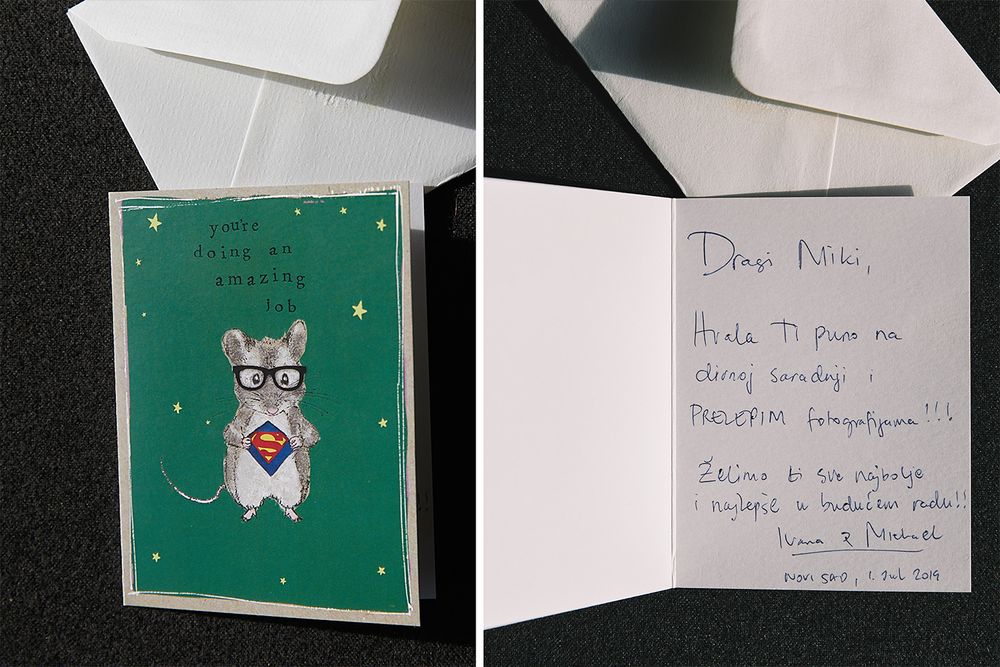 you're
doing an
amazing
job
S
Dragi Miki,
Hvala Ti puno na
divnoj saradnji i
PRELEPIM fotografijama!!!
Želimo ti sve najbolje
i najlepše u budućem radu!!
Ivana & Michael
NOVI SAD, 1. Jul 2019